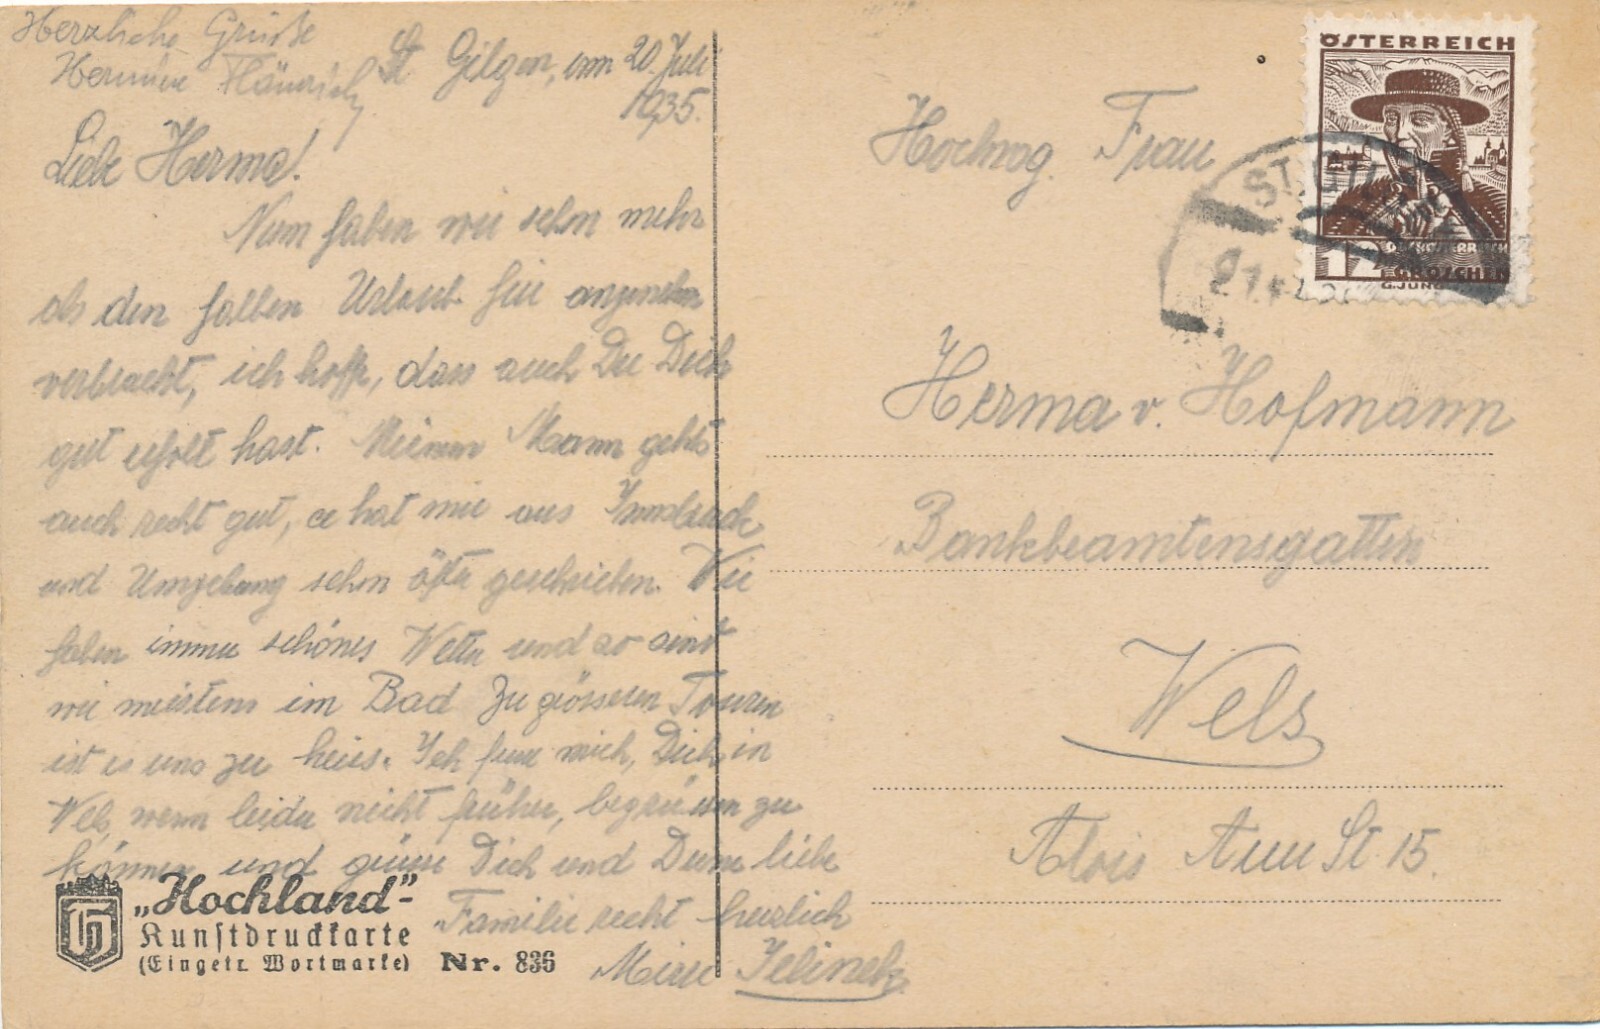 Herzliche Grüße
Hermine
St Gilgen, am 20. Juli
1935.
Liebe Herma!
Nun haben wir schon mehr
als den halben Urlaub hier angenehm
verbracht, ich hoffe, dass auch Du Dich
gut erholt hast. Meinem Mann gehts
auch recht gut, er hat mir aus Innsbruck
und Umgebung schon öfter geschrieben. Wir
haben immer schönes Wetter und so sind
wir meistens im Bad Zu grösseren Touren
ist es uns zu heiss. Ich freue mich, Dich in
Wels, wenn leider nicht früher, begrüssen zu
können und grüsse Dich und Deine liebe
Familie recht herzlich
Jelinek
"Hochland"-
Kunstdruckkarte
(Eingetr. Wortmarke) Nr. 836
ÖSTERREICH
OBERÖSTERREICH
12 GROSCHEN
G.JUNG
ST. GIL
Hochwog. Frau
Herma v. Hofmann
Bankbeamtensgattin
Wels
Alois Auer St 15.